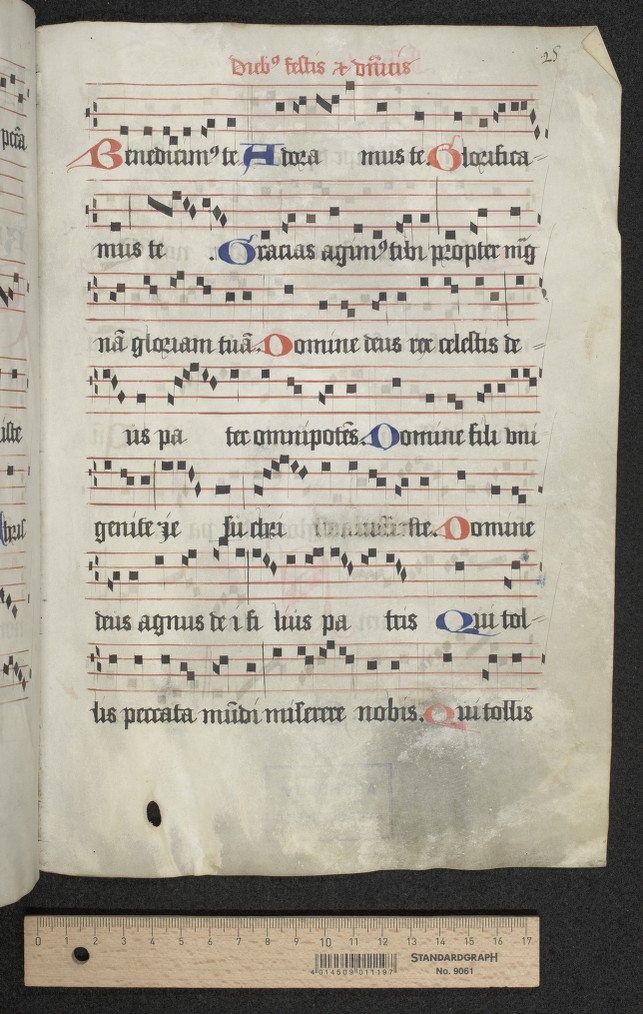 Dieb⁹ festis ⁊ dn̄icis
25
Benedicim⁹ te Adora mus te. Glorifica-
mus te . Gracias agim⁹ tibi propter
nā gloriam tuā. Domine deus rex celestis de-
us pa ter omnipotēs. Domine fili vni
genite ie su chri ste. Domine
deus agnus de i fi lius pa tris Qui tol-
lis peccata mūdi miserere nobis. Qui tollis
pctā
0 1 2 3 4 5 6 7 8 9 10 11 12 13 14 15 16 17
4 014509 011197
STANDARDGRAPH
No. 9061